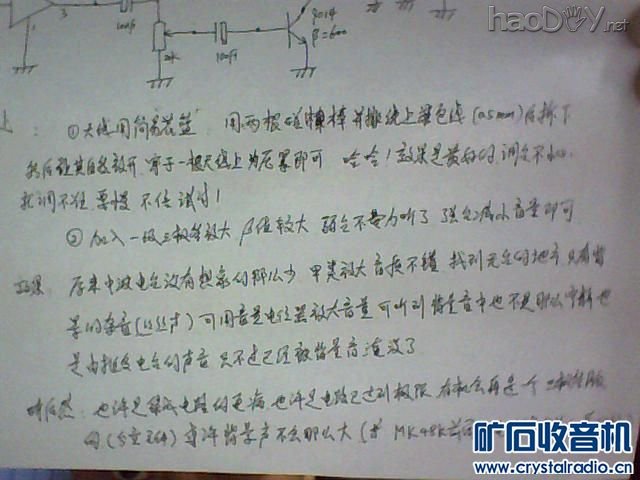 haoDIY.net
100μ
2k
100μ
9014
β=600
①天线用简易花篮 用两根磁棒并排绕上单色线(0.5mm)后拆下
然后让其自然放开 穿于一根天线上为尼罗即可 哈哈!效果是最好的 调
就调不准 要慢 不信试试!
②加入一级三极管放大 β值较大 弱台不费力听了 强台减小音量即可
效果 原来中波电台没有想象的那么少 甲类放大音质不错 找到无台的地方 只有背
景的杂音(丝丝声)可用音量电位器放大音量 可听到背景音中也不是那么 也
是由很多电台的声音 只不过已经被背景音淹没了
听后感:也许是 电路的毛病 也许是电路已达到极限 有机会再是一个三极管版
的(分立264)或许背景声不会那么大(求 MK484
矿石收音机
www.crystalradio.cn